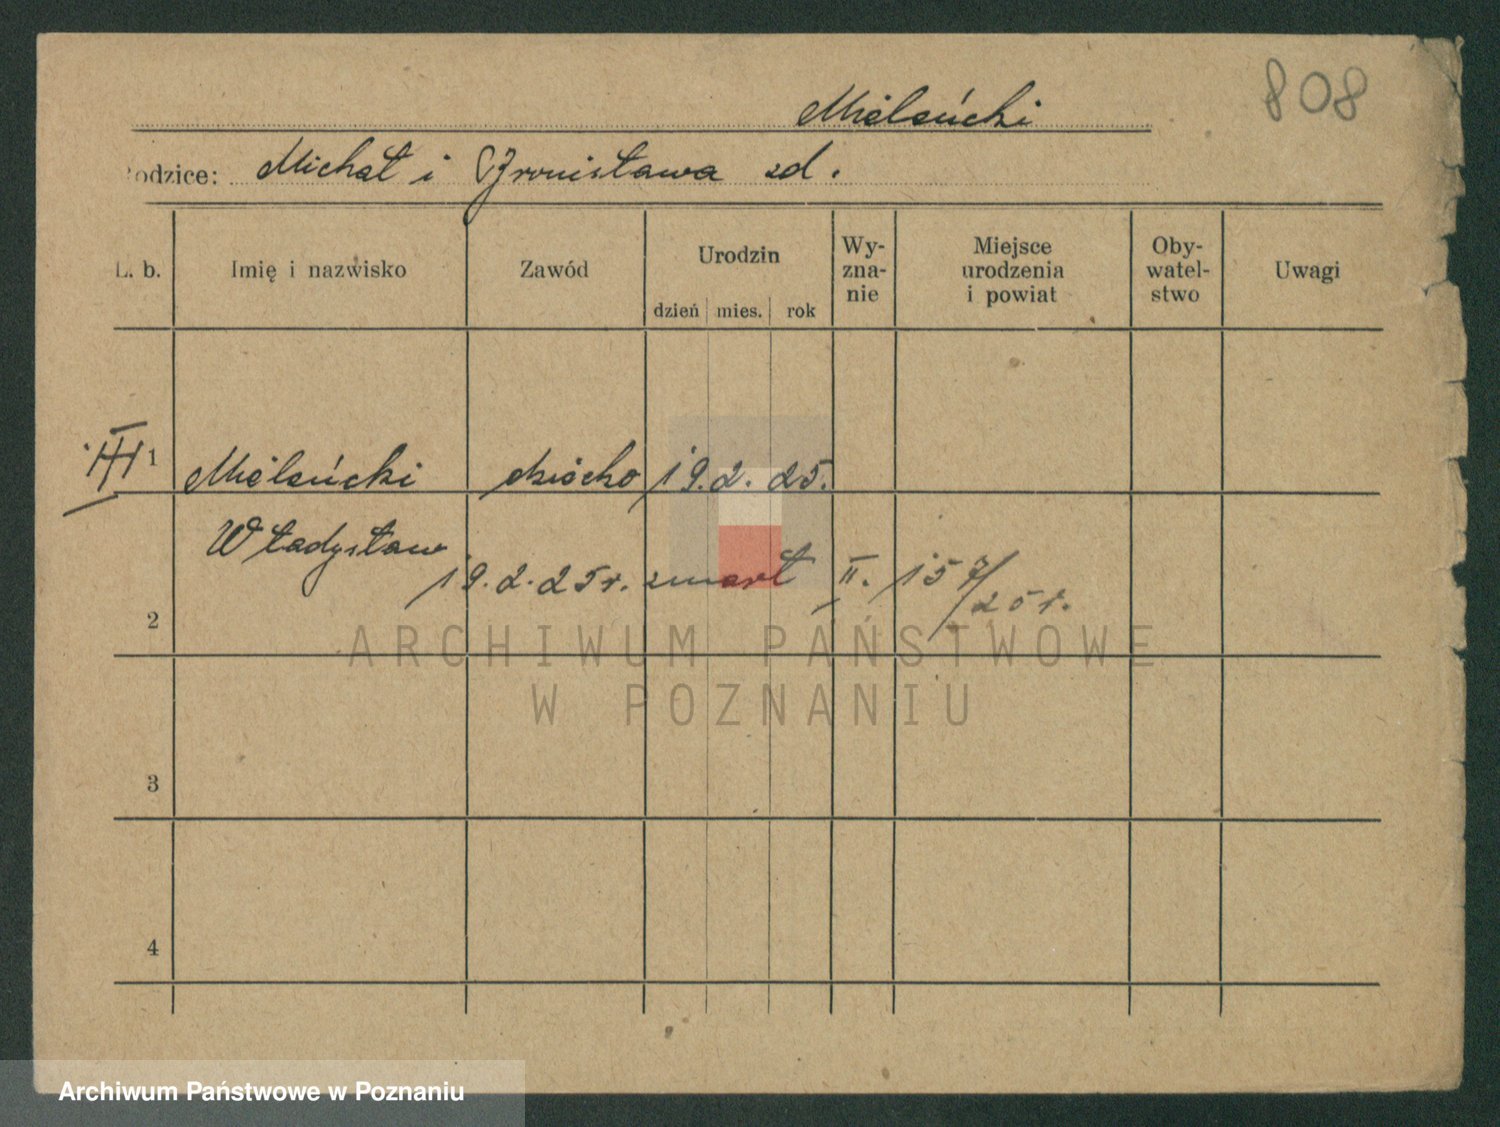 808
Mieleńcki
Rodzice: Michał i Bronisława zd.
L. b. Imię i nazwisko Zawód Urodzin dzień mies. rok Wy-zna-nie Miejsce urodzenia i powiat Oby-watel-stwo Uwagi
III 1 Mieleńcki dziecko 19. 2. 25.
Władysław
19. 2. 25 r. zmarł II. 157/25 r.
2
ARCHIWUM PAŃSTWOWE
W POZNANIU
3
4
Archiwum Państwowe w Poznaniu